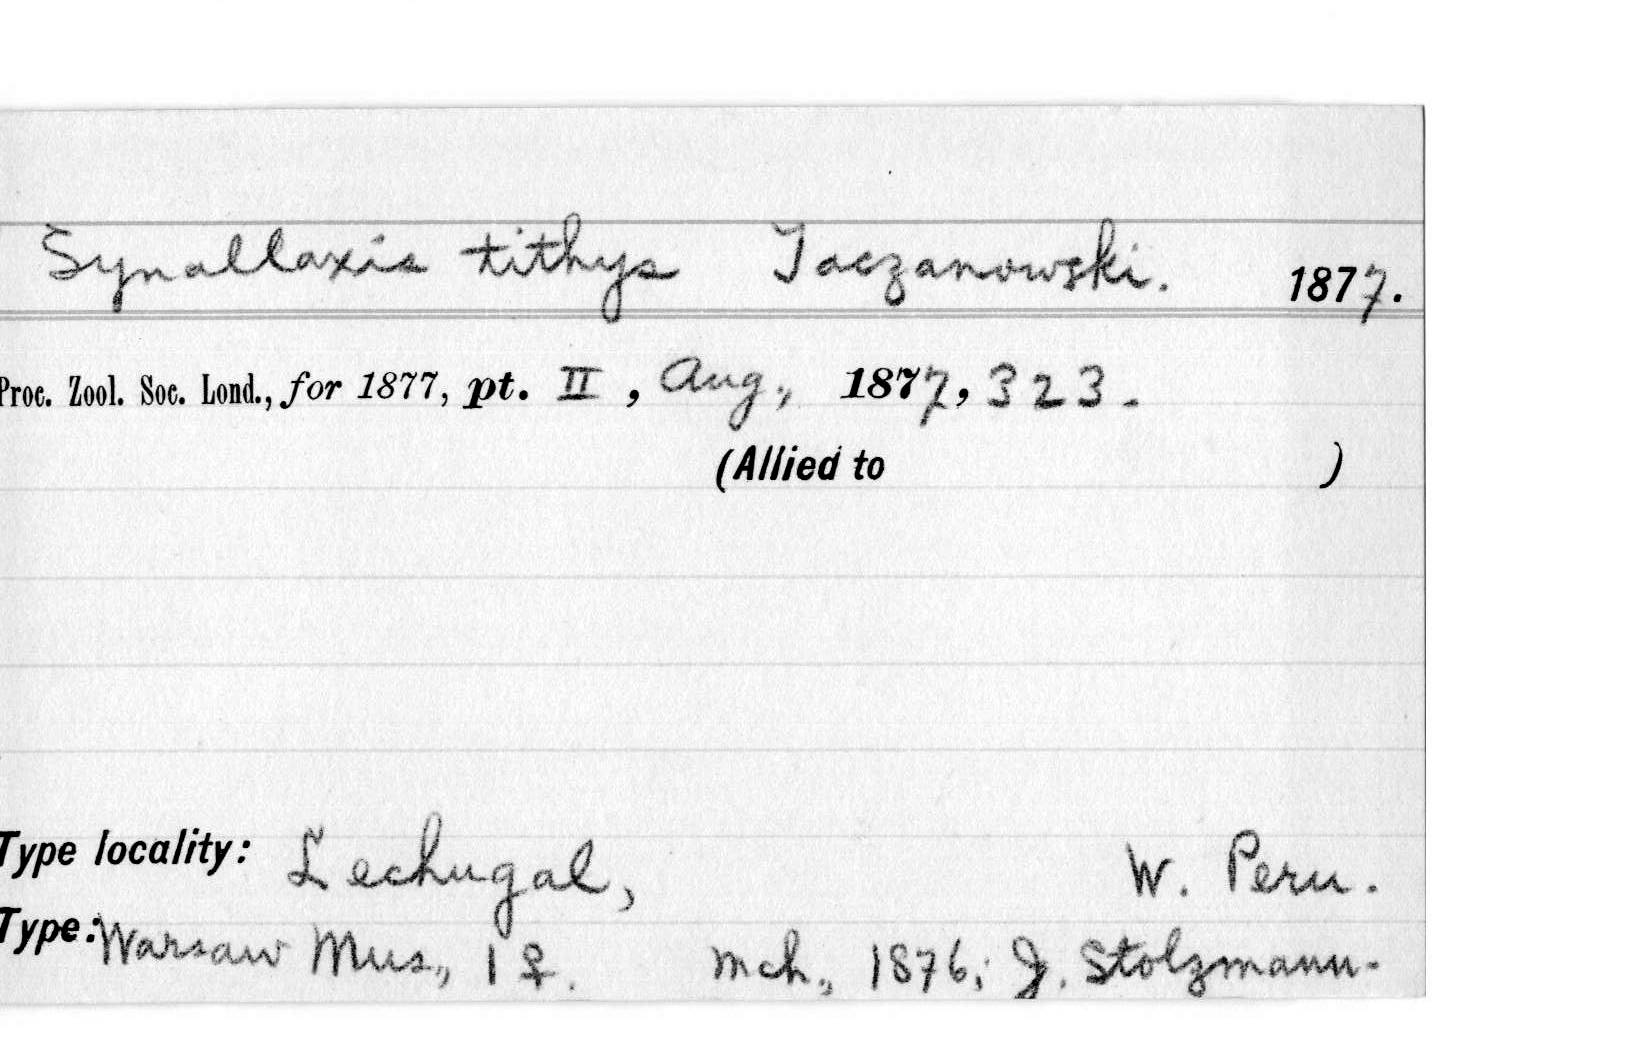 Synallaxis tithys Taczanowski. 1877.
Proc. Zool. Soc. Lond., for 1877, pt. II, Aug., 1877, 323.
(Allied to )
Type locality: Lechugal, W. Peru.
Type: Warsaw Mus., 1 ♀. Mch., 1876; J. Stolzmann.